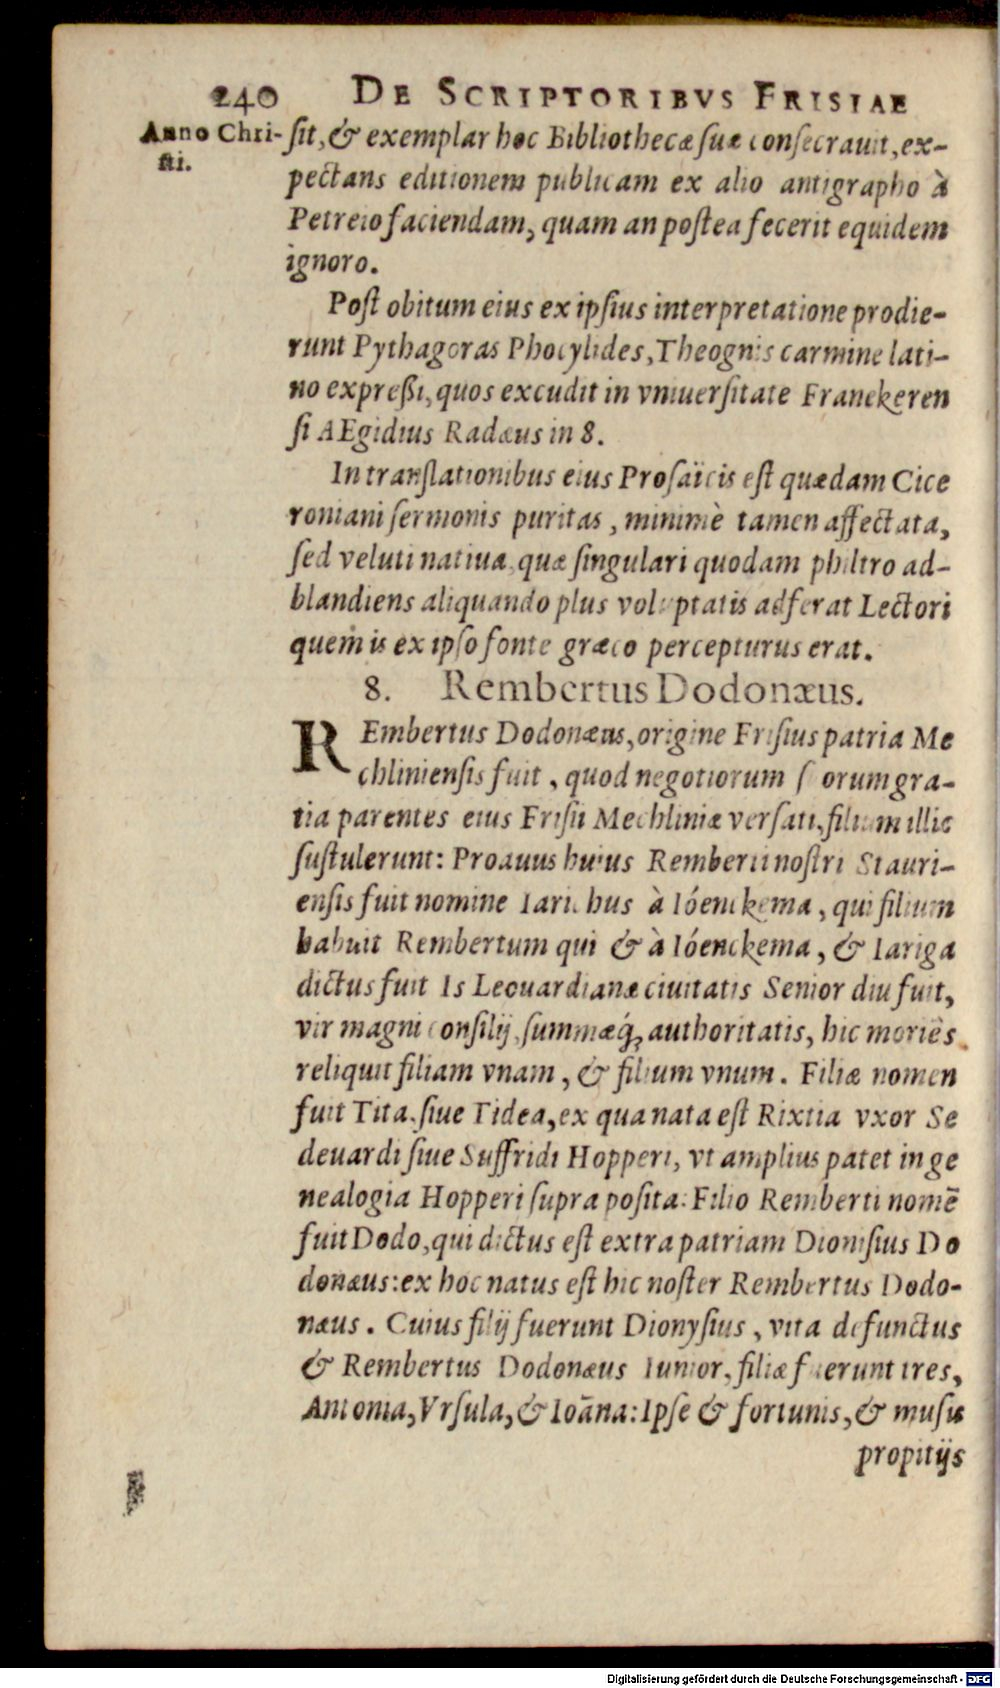 240 DE SCRIPTORIBVS FRISIAE
Anno Chri-
sti.
sit, & exemplar hoc Bibliothecæ suæ consecrauit, ex-
pectans editionem publicam ex alio antigrapho à
Petreio faciendam, quam an postea fecerit equidem
ignoro.
Post obitum eius ex ipsius interpretatione prodie-
runt Pythagoras Phocylides, Theognis carmine lati-
no expreßi, quos excudit in vniuersitate Franekeren
si AEgidius Radæus in 8.
In translationibus eius Prosaïcis est quædam Cice
roniani sermonis puritas, minimè tamen affectata,
sed veluti natiua, quæ singulari quodam philtro ad-
blandiens aliquando plus voluptatis adferat Lectori
quem is ex ipso fonte græco percepturus erat.
8. Rembertus Dodonæus.
REmbertus Dodonæus, origine Frisius patria Me
chliniensis fuit, quod negotiorum s orum gra-
tia parentes eius Frisii Mechliniæ versati, filium illic
sustulerunt: Proauus huius Remberti nostri Stauri-
ensis fuit nomine Iarichus à Ióenckema, qui filium
habuit Rembertum qui & à Ióenckema, & Iariga
dictus fuit Is Leouardianæ ciuitatis Senior diu fuit,
vir magni consilij, summæq́; authoritatis, hic moriẽs
reliquit filiam vnam, & filium vnum. Filiæ nomen
fuit Tita, siue Tidea, ex qua nata est Rixtia vxor Se
deuardi siue Suffridi Hopperi, vt amplius patet in ge
nealogia Hopperi supra posita: Filio Remberti nomẽ
fuit Dodo, qui dictus est extra patriam Dionisius Do
donæus: ex hoc natus est hic noster Rembertus Dodo-
næus. Cuius filij fuerunt Dionysius, vita defunctus
& Rembertus Dodonæus Iunior, filiæ fuerunt tres,
Antonia, Vrsula, & Ioãna: Ipse & fortunis, & musis
propitijs
Digitalisierung gefördert durch die Deutsche Forschungsgemeinschaft - DFG